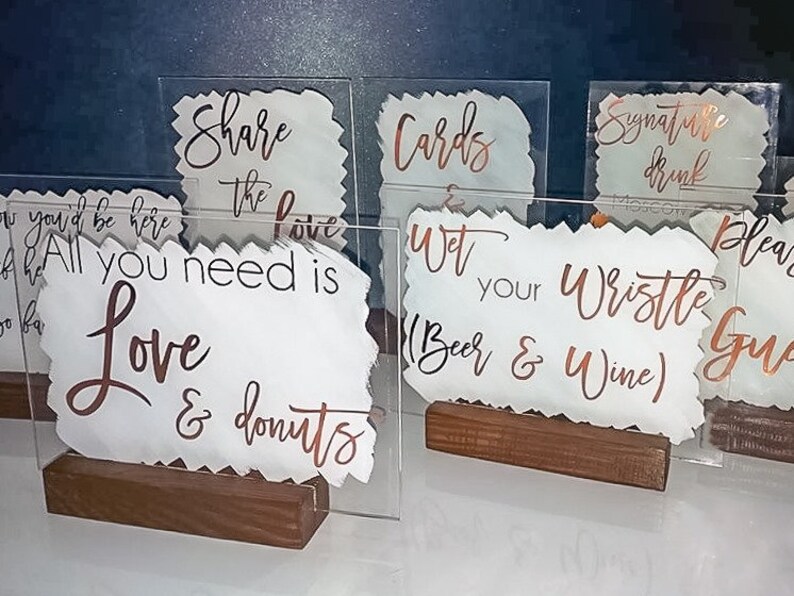 Share
the
Love
Cards
&
Signature
drink
Moscow
you'd be here
All you need is
Love
& donuts
Wet
your Wristle
(Beer & Wine)